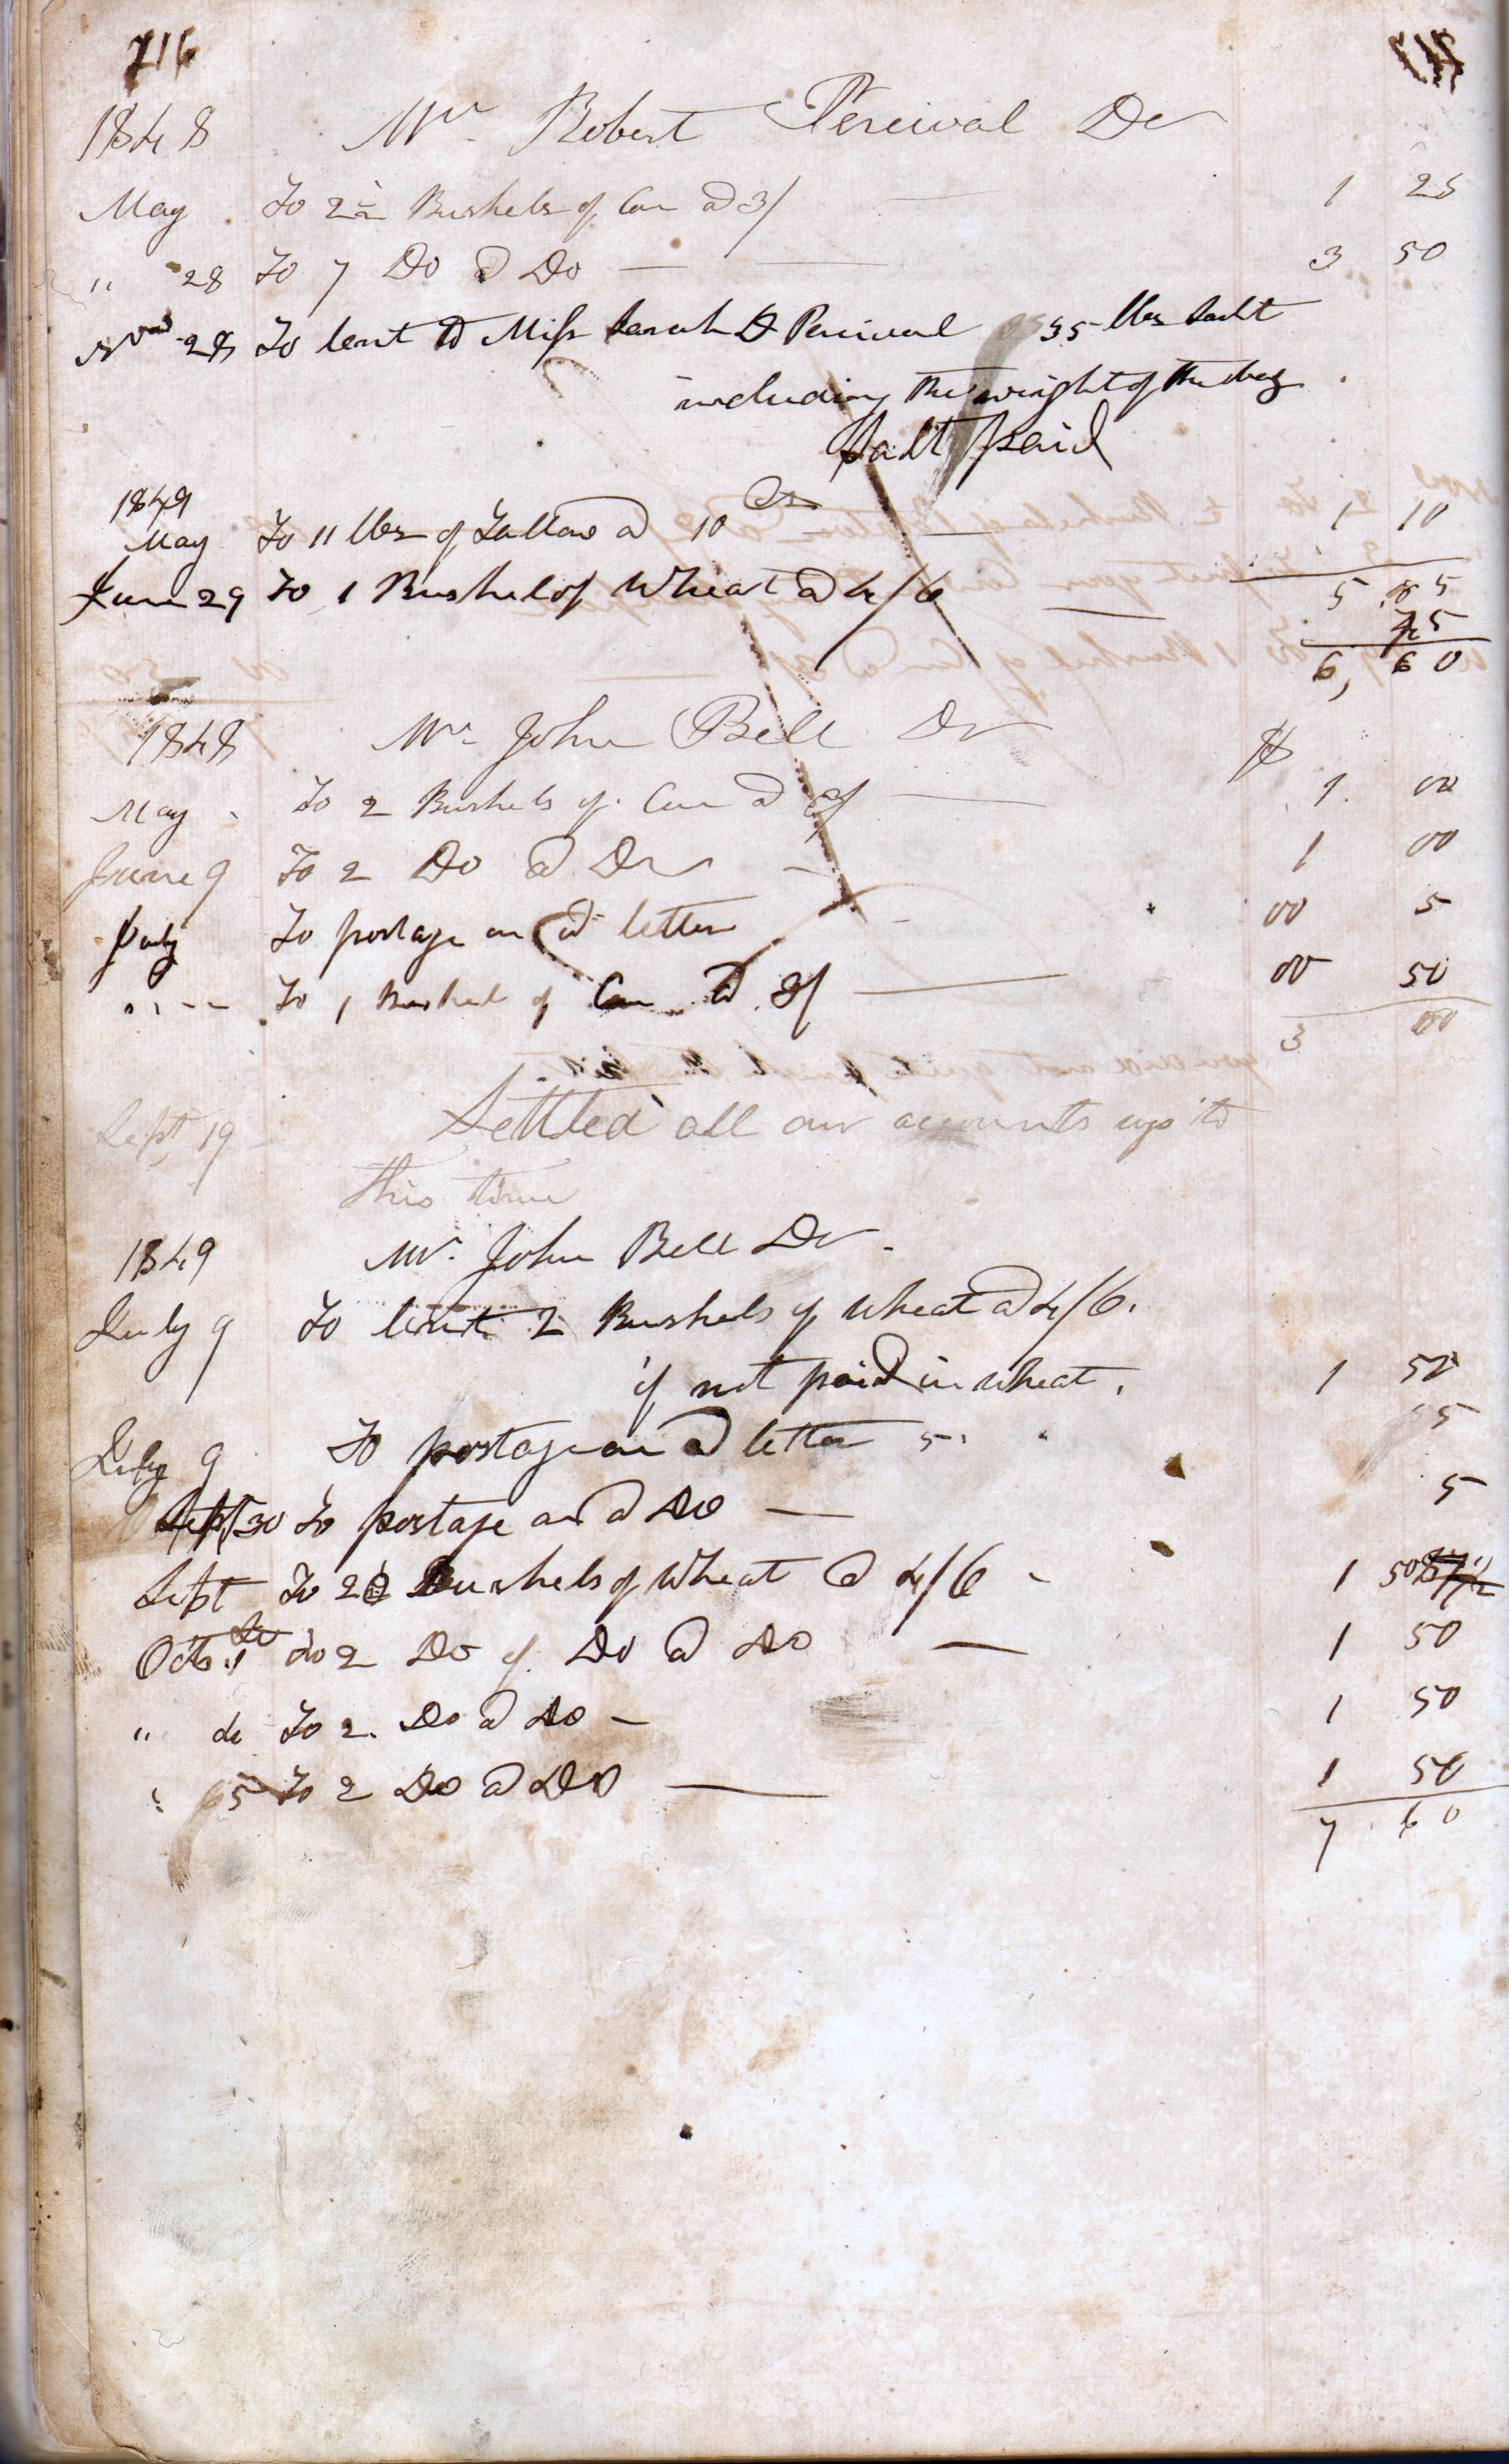 216
1848 Mr. Robert Percival Dr
May To 2½ Bushels of Corn @ 3/ 1 25
" 28 To 7 Do @ Do 3 50
28 To lent to Miss Sarah D Percival 35 lbs Salt
including the weight of the bag
Salt paid
1849
May To 11 lbs of Tallow @ 10 Cts 1 10
5 85
June 29 To 1 Bushel of Wheat @ 4/6 75
6, 60
1848 Mr. John Bell Dr $
May To 2 Bushels of Corn @ 3/ 1 00
June 9 To 2 Do @ Do 1 00
July To postage on a letter 00 5
" " To 1 Bushel of Corn @ 3/ 00 50
3 00
Sept 19 Settled all our accounts up to
this time
1849 Mr. John Bell Dr.
July 9 To lent 2 Bushels of wheat @ 4/6.
if not paid in wheat. 1 50
July 9 To postage on a letter 5. 5
Sept 30 To postage on a Do 5
Sept To 2 Bushels of Wheat @ 4/6 1 50
Octo. 1st To 2 Do of Do @ Do 1 50
" do To 2 Do @ Do 1 50
" 5 To 2 Do @ Do 1 50
7 60